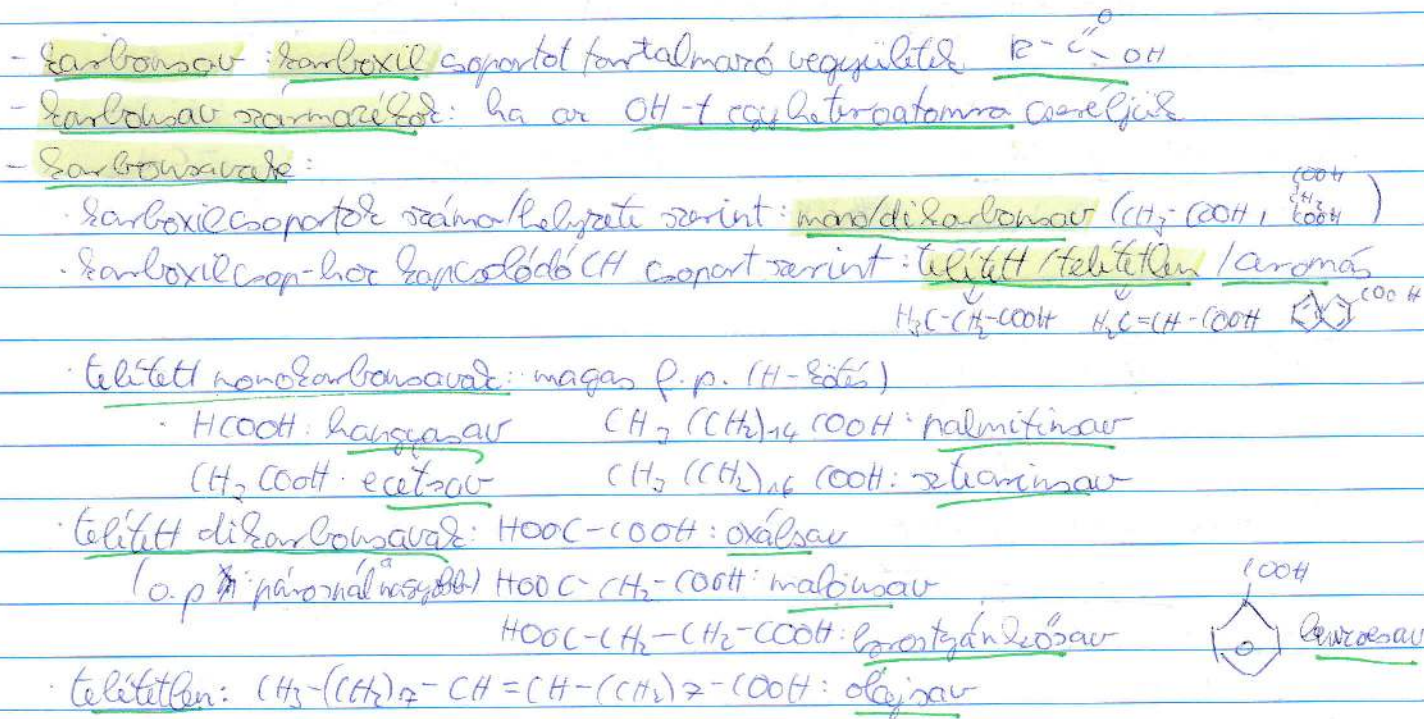 - karbonsav: karboxil csoportot tartalmazó vegyületek R-C(=O)-OH
- karbonsav származékok: ha az OH-t egy heteroatomra cseréljük
- karbonsavak:
· karboxilcsoportok száma/helyzete szerint: mono/dikarbonsav (CH3-COOH, COOH CH2 COOH)
· karboxilcsop-hoz kapcsolódó CH csoport szerint: telített/telítetlen/aromás
H3C-CH2-COOH H2C=CH-COOH COOH
· telített monokarbonsavak: magas f.p. (H-kötés)
· HCOOH: hangyasav CH3(CH2)14COOH: palmitinsav
CH3COOH: ecetsav CH3(CH2)16COOH: sztearinsav
· telített dikarbonsavak: HOOC-COOH: oxálsav
(o.p.: párosnál nagyobb) HOOC-CH2-COOH: malonsav
COOH
HOOC-CH2-CH2-COOH: borostyánkősav benzoesav
· telítetlen: CH3-(CH2)7-CH=CH-(CH2)7-COOH: olajsav